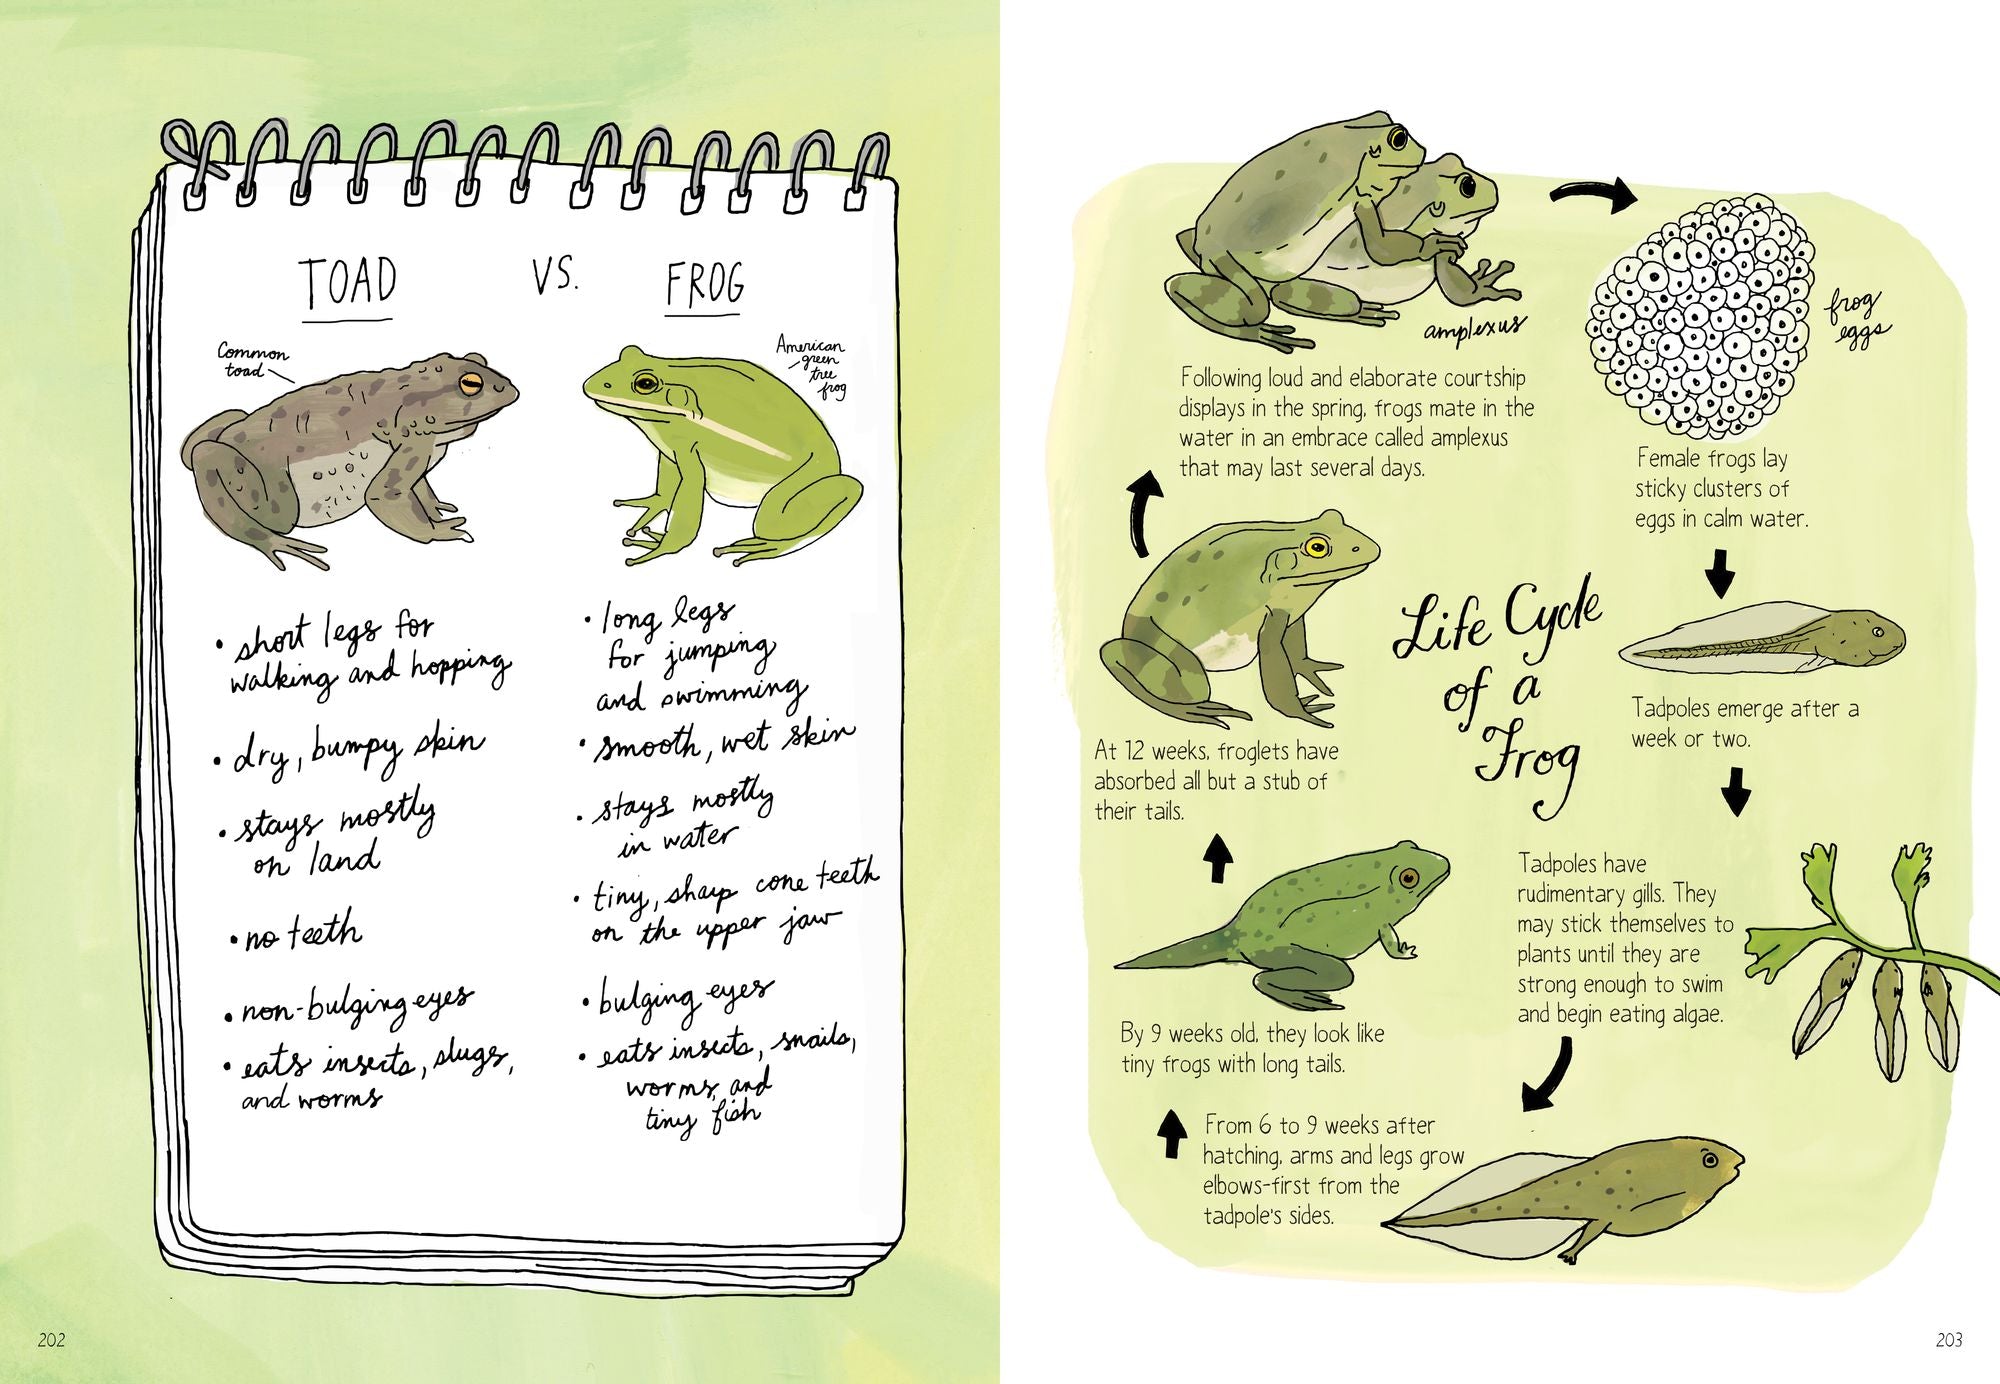 TOAD
VS.
FROG
Common
toad
American
green
tree
frog
• short legs for
walking and hopping
• dry, bumpy skin
• stays mostly
on land
• no teeth
• non-bulging eyes
• eats insects, slugs,
and worms
• long legs
for jumping
and swimming
• smooth, wet skin
• stays mostly
in water
• tiny, sharp cone teeth
on the upper jaw
• bulging eyes
• eats insects, snails,
worms, and
tiny fish
202
amplexus
Following loud and elaborate courtship
displays in the spring, frogs mate in the
water in an embrace called amplexus
that may last several days.
frog
eggs
Female frogs lay
sticky clusters of
eggs in calm water.
Life Cycle
of a
Frog
Tadpoles emerge after a
week or two.
Tadpoles have
rudimentary gills. They
may stick themselves to
plants until they are
strong enough to swim
and begin eating algae.
From 6 to 9 weeks after
hatching, arms and legs grow
elbows-first from the
tadpole's sides.
By 9 weeks old, they look like
tiny frogs with long tails.
At 12 weeks, froglets have
absorbed all but a stub of
their tails.
203